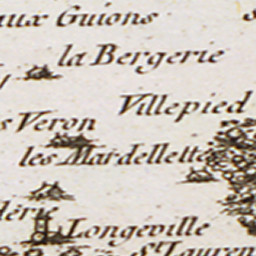 aux Guions
la Bergerie
Villepied
s Veron
les Mardellette
lérie
Longéville
St Lauren